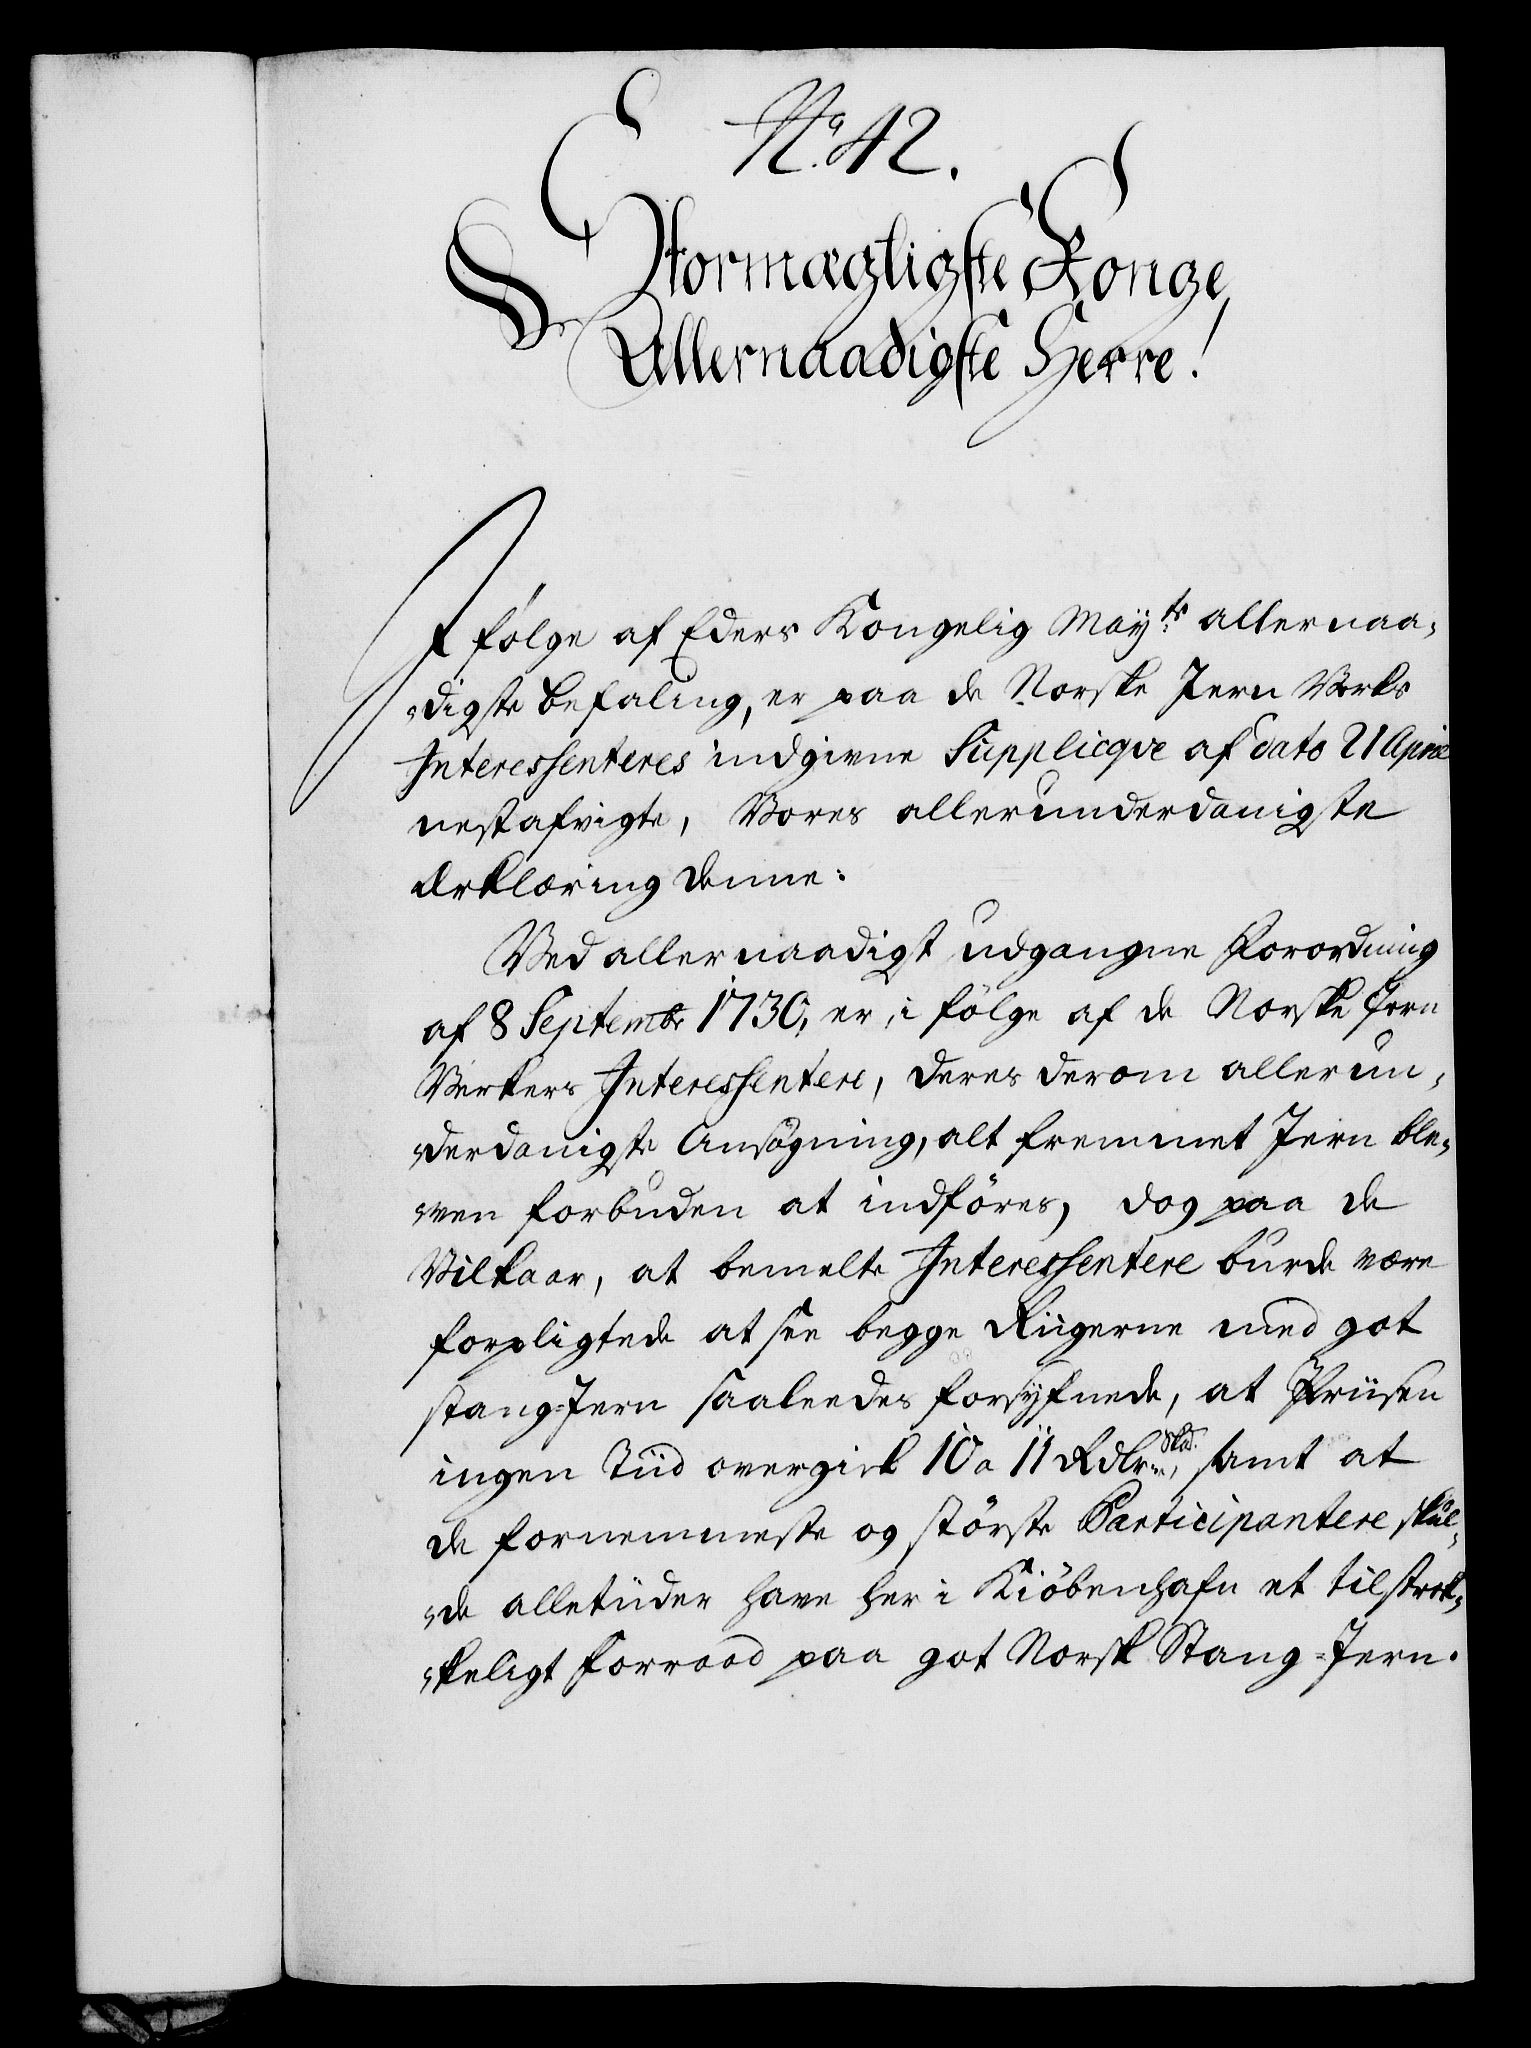 No. 42.
Stormægtigste Konge,
Allernaadigste Herre!
I følge af Eders Kongelig Mayts allernaa-
digste befaling, er paa de Norske Jern Verks
Interessenteres indgivne Supplicqve af dato 21 April
nestafvigte, Vores allerunderdanigste
Erklæring denne:
Ved allernaadigst udgangne Forordning
af 8 Septembr 1730, er, i følge af de Norske Jern
Verkers Interessentere, deres derom allerun-
derdanigste Ansøgning, alt fremmet Jern ble-
ven forbuden at indføres, dog paa de
Vilkaar, at bemelte Interessentere burde være
forpligtede at see begge Riigerne med got
stang-Jern saaleedes forsyfnede, at Priisen
ingen Tiid overgick 10 a 11 Rdlr Skd., samt at
de fornemmeste og største Participantere skul-
de alletiider have her i Kiøbenhafn et tilstrek-
keligt Forraad paa got Norsk Stang-Jern.